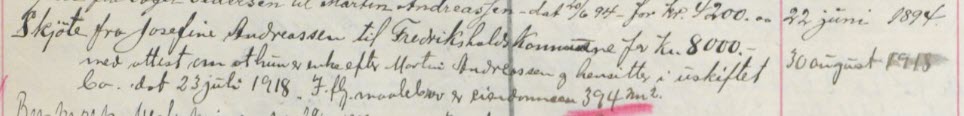 til Martin Andreassen - dat 20/6 94 - for Kr. 4200.00 22 juni 1894
Skjöte fra Josefine Andreassen til Fredrikshalds Kommune for Kr. 8000.-
med attest om at hun er enke efter Martin Andreassen og hensitter i uskiftet 30 august 1918
bo. dat 23 juli 1918. I flg. maalebrev er eiendommen 394 m2.